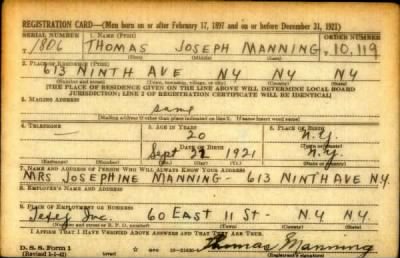 REGISTRATION CARD—(Men born on or after February 17, 1897 and on or before December 31, 1921)
SERIAL NUMBER 1. NAME (Print) ORDER NUMBER
1806 THOMAS JOSEPH MANNING 10,119
(First) (Middle) (Last)
2. PLACE OF RESIDENCE (Print)
613 NINTH AVE NY NY
(Number and street) (Town, township, village, or city) (County) (State)
[THE PLACE OF RESIDENCE GIVEN ON THE LINE ABOVE WILL DETERMINE LOCAL BOARD
JURISDICTION; LINE 2 OF REGISTRATION CERTIFICATE WILL BE IDENTICAL]
3. MAILING ADDRESS
same
[Mailing address if other than place indicated on line 2. If same insert word same]
4. TELEPHONE 5. AGE IN YEARS 6. PLACE OF BIRTH
20 N.Y.
DATE OF BIRTH (Town or county)
Sept 1921 N.Y.
(Exchange) (Number) (Mo.) (Day) (Yr.) (State or country)
7. NAME AND ADDRESS OF PERSON WHO WILL ALWAYS KNOW YOUR ADDRESS
MRS JOSEPHINE MANNING - 613 NINTH AVE N.Y.
8. EMPLOYER'S NAME AND ADDRESS
Inc.
9. PLACE OF EMPLOYMENT OR BUSINESS
60 EAST 11 St - N.Y. N.Y.
(Number and street or R. F. D. number) (Town) (County) (State)
I AFFIRM THAT I HAVE VERIFIED ABOVE ANSWERS AND THAT THEY ARE TRUE.
D. S. S. Form 1
(Revised 1-1-42) Thomas Manning
(Registrant's signature)